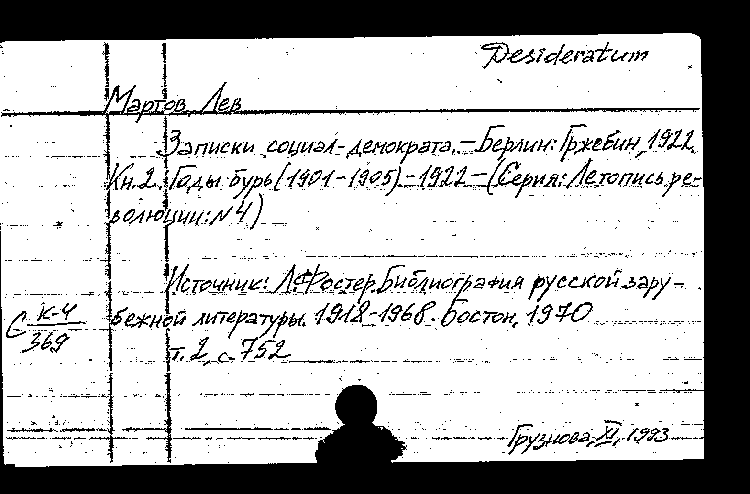 Desideratum
Мартов, Лев
Записки социал-демократа.—Берлин: Гржебин, 1922.
Кн. 2. Годы бурь (1901-1905)-1922-(Серия: Летопись ре-
волюции: №4)
Источник: Л. Фостер. Библиография русской зару-
бежной литературы. 1918-1968. Бостон, 1970
т. 2, с. 752
С К-4
369
Грузнова, XI, 1993